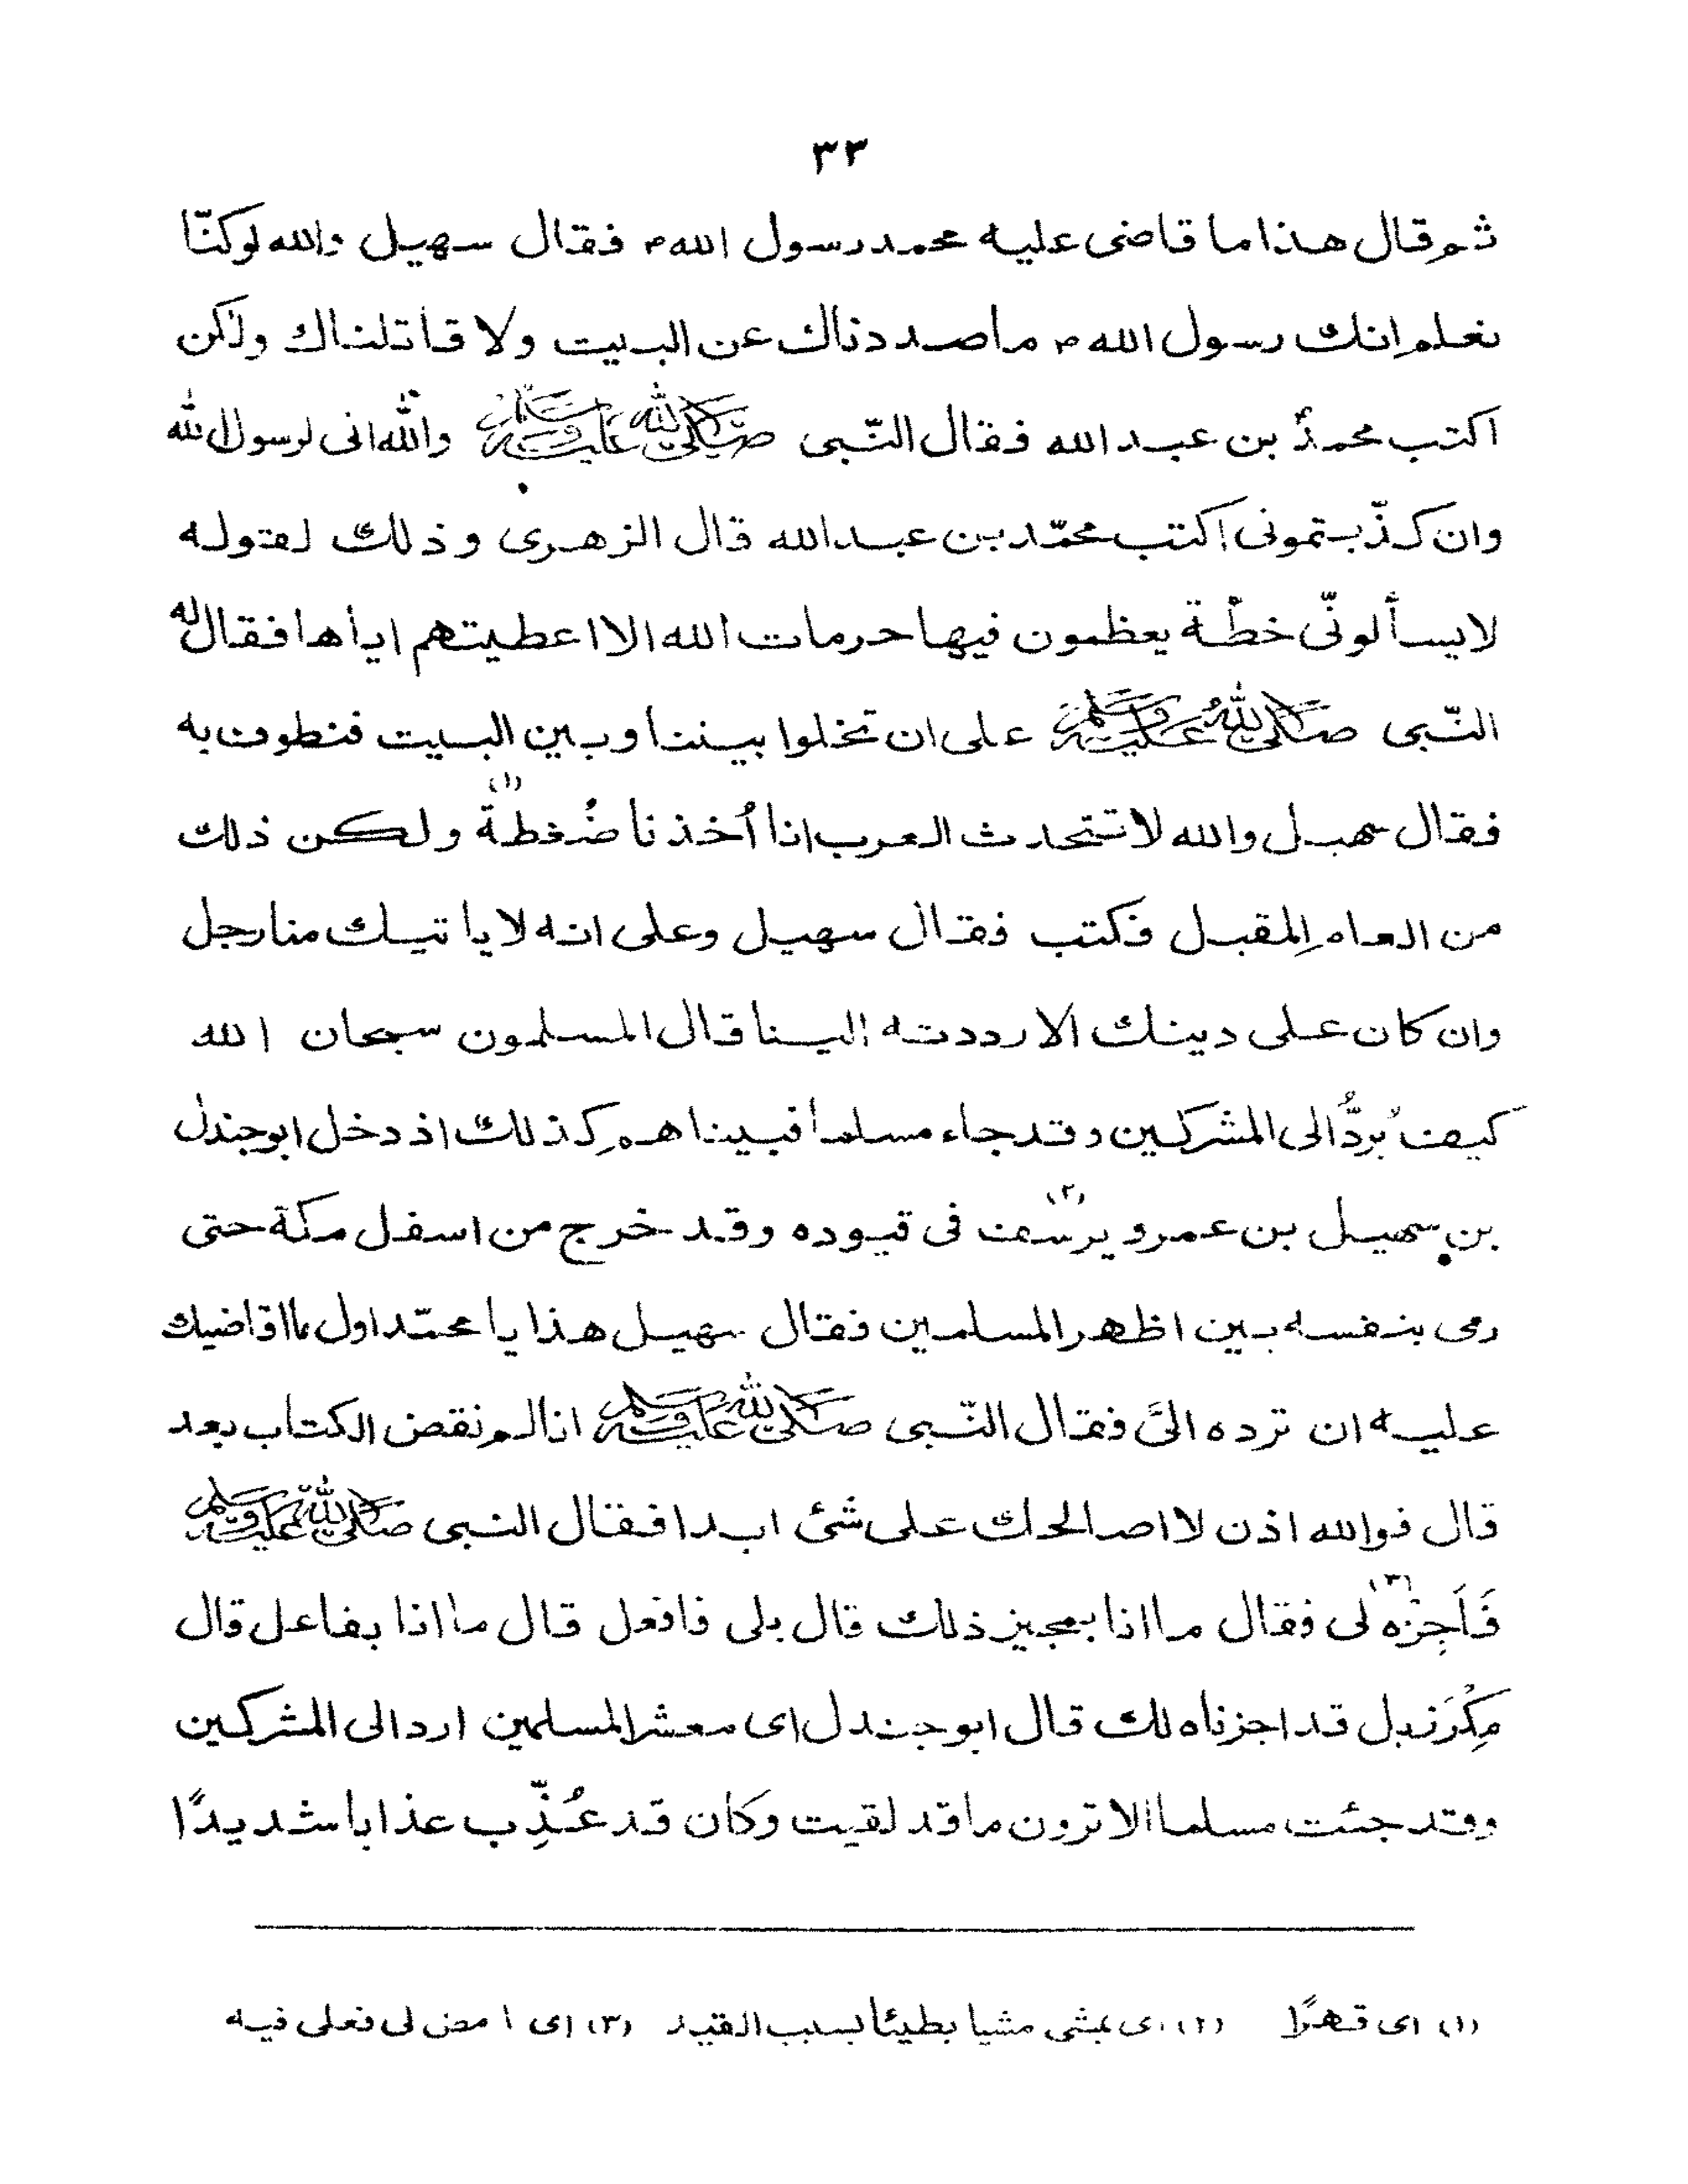 ٣٣
ثم قال هذا ما قاضى عليه محمد رسول اللهم فقال سهيل والله لو كنّا
نعلم انك رسول اللهم ما صددناك عن البيت ولا قاتلناك ولكن
اكتب محمدٌ بن عبد الله فقال النّبى صلى الله عليه وسلم والله انى لرسول الله
وان كذّبتمونى اكتب محمّد بن عبد الله قال الزهرى وذلك لقوله
لا يسألونّى خطّة يعظمون فيها حرمات الله الا اعطيتهم اياها فقال له
النّبى صلى الله عليه وسلم على ان تخلوا بيننا وبين البيت فنطوف به
فقال سهيل والله لا تتحدث العرب انا أُخذنا ضُغطة (١) ولكن ذلك
من العام المقبل فكتب فقال سهيل وعلى انه لا ياتيك منا رجل
وان كان على دينك الا رددته الينا قال المسلمون سبحان الله
كيف يُردُّ الى المشركين وقد جاء مسلما فبينا هم كذلك اذ دخل ابو جندل
بن سهيل بن عمرو يرسف (٢) فى قيوده وقد خرج من اسفل مكة حتى
رمى بنفسه بين اظهر المسلمين فقال سهيل هذا يا محمّد اول ما اقاضيك
عليه ان ترده الىَّ فقال النّبى صلى الله عليه وسلم انا لم نقض الكتاب بعد
قال فوالله اذن لا اصالحك على شئ ابدا فقال النبى صلى الله عليه وسلم
فَاَجِزْه (٣) لى فقال ما انا بمجيز ذلك قال بلى فافعل قال ما انا بفاعل قال
مِكْرَز بل قد اجزناه لك قال ابو جندل اى معشر المسلمين ارد الى المشركين
وقد جئت مسلما الا ترون ما قد لقيت وكان قد عُذِّب عذابا شديدًا
(١) اى قهرًا (٢) اى يمشى مشيا بطيئا بسبب القيد (٣) اى امض لى فعلى فيه